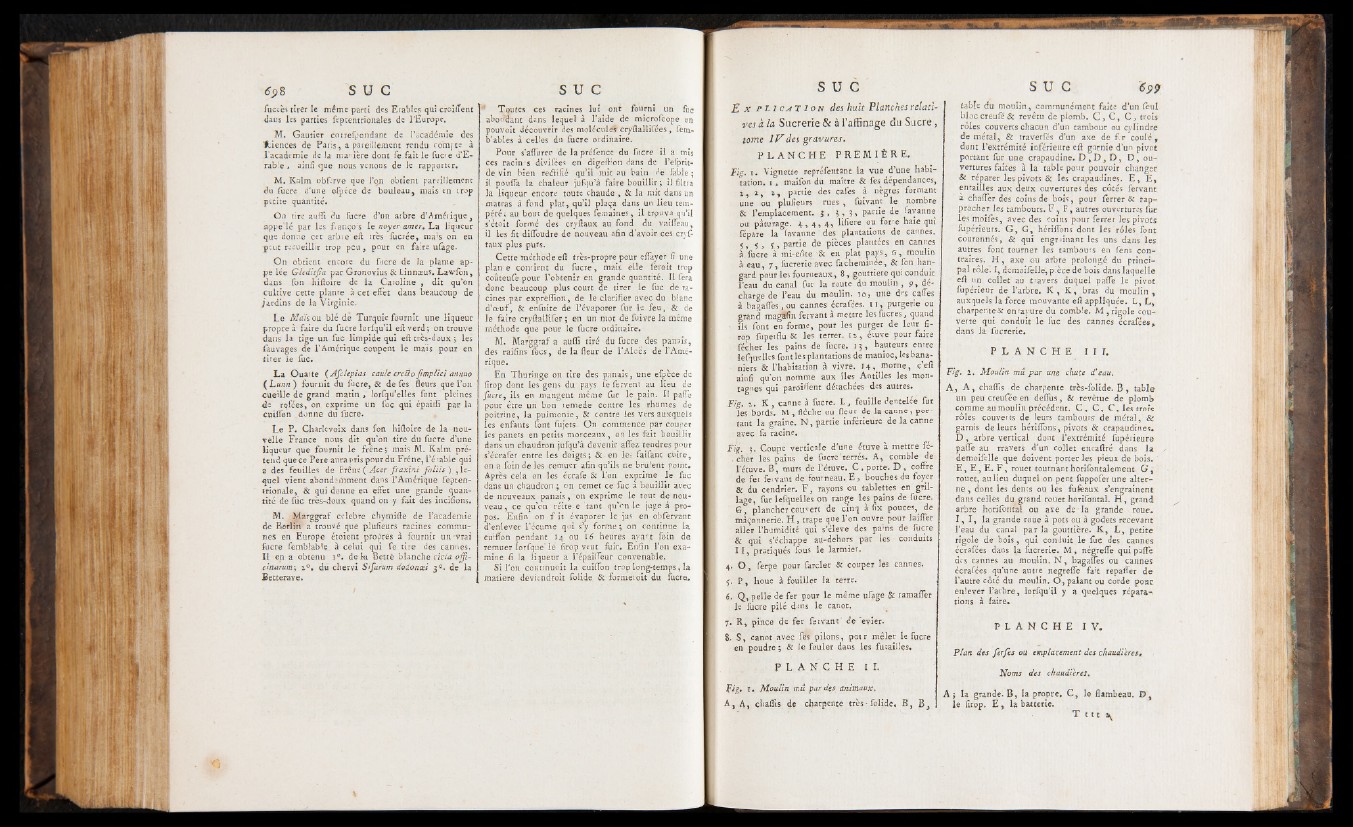 698 SUC
succès tirer le même parti des Erables qui croissent
dans les parties septentrionales de l'Europe.
M. Gautier correspondant de l'académie des
Sciences de Paris, a pareillement rendu compte à
l'académie de la manière dont se fait le sucre d'E-
rable, ainsi que nous venons de le rapporter.
M. Kalm observe que l'on obtient pareillement
du sucre d'une espèce de bouleau, mais en trop
petite quantité.
On tire aussi du sucre d'un arbre d'Amérique,
appellé par les françois le noyer amer. La liqueur
que donne cet arbre est très sucrée, mais on en
peut recueillir trop peu, pour en faire usage.
On obtient encore du sucre de la plante ap-
pellée Gleditsia par Gronovius & Linnaeus. Lawson,
dans son histoire de la Caroline, dit qu'on
cultive cette plante à cet effet dans beaucoup de
jardins de la Virginie.
Le Maïs ou blé de Turquie fournit une liqueur
propre à faire du sucre lorsqu'il est verd; on trouve
dans la tige un suc limpide qui est très-doux; les
sauvages de l'Amérique coupent le maïs pour en
tirer le suc.
La Ouatte (Asclepias caule erecto simplici annuo
(Linn) fournit du sucre, & de ses fleurs que l'on
cueille de grand matin, lorsqu'elles sont pleines
de rosées, on exprime un suc qui épaissi par la
cuisson donne du sucre.
Le P. Charlevoix dans son histoire de la nou-
velle France nous dit qu'on tire du sucre d'une
liqueur que fournit le frêne; mais M. Kalm pré-
tend que ce Pere aura pris pour du Frêne, l'érable qui
a des feuilles de Frêne (Acer fraxini foliis), le-
quel vient abondamment dans l'Amérique septen-
trionale, & qui donne en effet une grande quan-
tité de suc très-doux quand on y fait des incisions.
M. Marggraf celebre chymiste de l'academie
de Berlin a trouvé que plusieurs racines commu-
nes en Europe étoient propres à fournir un vrai
sucre semblable à celui qui se tire des cannes.
Il en a obtenu 1°. de la Bette blanche cicla offi-
cinarum; 2°. du chervi Sisarum dodonaei 3°. de la
Betterave.
SUC
Toutes ces racines lui ont fourni un suc
abondant dans lequel à l'aide de microscope on
pouvoit découvrir des molécules crystallisées, sem-
blables à celles du sucre ordinaire.
Pour s'assurer de la présence du sucre il a mis
ces racines divisées en digestion dans de l'esprit-
de vin bien rectifié qu'il mit au bain de sable;
il poussa la chaleur jusqu'à faire bouillir; il filtra
la liqueur encore toute chaude, & la mit dans un
matras à fond plat, qu'il plaça dans un lieu tem-
péré: au bout de quelques semaines, il trouva qu'il
s'étoit formé des crystaux au fond du vaisseau,
il les fit dissoudre de nouveau afin d'avoir ces crys-
taux plus purs.
Cette méthode est très-propre pour essayer si une
plante contient du sucre, mais elle seroit trop
coûteuse pour l'obtenir en grande quantité. Il sera
donc beaucoup plus court de tirer le suc de ra-
cines par expression, de le clarifier avec du blanc
d'œuf, & ensuite de l'évaporer sur le feu, & de
le faire crystalliser; en un mot de suivre la même
méthode que pour le sucre ordinaire.
M. Marggraf a aussi tiré du sucre des panais,
des raisins secs, de la fleur de l'Aloës de l'Amé-
rique.
En Thuringe on tire des panais, une espèce de
sirop dont les gens du pays se servent au lieu de
sucre, ils en mangent même sur le pain. Il passe
pour être un bon remede contre les rhumes de
poitrine, la pulmonie, & contre les vers auxquels
les enfants sont sujets. On commence par couper
les panets en petits morceaux, on les fait bouillir
dans un chaudron jusqu'à devenir assez tendres pour
s'écraser entre les doigts; & en les faisant cuire,
on a soin de les remuer afin qu'ils ne brulent point.
Après cela on les écrase & l'on exprime le suc
dans un chaudron; on remet ce suc à bouillir avec
de nouveaux panais, on exprime le tout de nou-
veau, ce qu'on réïtere tant qu'on le juge à pro-
pos. Enfin on fait évaporer le jus en observant
d'enlever l'écume qui s'y forme; on continue la
cuisson pendant 14 ou 16 heures ayant soin de
remuer lorsque le sirop veut fuir. Enfin l'on exa-
mine si la liqueur a l'épaisseur convenable.
Si l'on continuoit la cuisson trop long-temps, la
matiere deviendroit solide & formeroit du sucre.
SUC
EXPLICATION des huit Planches relati-
ves à la Sucrerie & à l'affinage du Sucre,
tome IV des gravures.
PLANCHE PREMIÈRE.
Fig. 1. Vignette représentant la vue d'une habi-
tation. 1, maison du maître & ses dépendances,
2, 2, 2, partie des cases à nègres formant
une ou plusieurs rues, suivant le nombre
& l'emplacement. 3, 3, 3, partie de savanne
ou pâturage. 4, 4, 4, lisiere ou forte haie qui
sépare la savanne des plantations de cannes.
5, 5, 5, partie de pièces plantées en cannes
à sucre à mi-côte & en plat pays, 6, moulin
à eau, 7, sucrerie avec sa cheminée, & son han-
gard pour les fourneaux, 8, gouttiere qui conduit
l'eau du canal sur la route du moulin, 9, dé-
charge de l'eau du moulin. 10, une des casses
à bagasses, ou cannes écrasées. 11, purgerie ou
grand magasin servant à mettre les sucres, quand
ils sont en forme, pour les purger de leur si-
rop superflu & les terrer. 12, étuve pour faire
sécher les pains de sucre. 13, hauteurs entre
lesquelles sont les plantations de manioc, les bana-
niers & l'habitation à vivre. 14, morne, c'est
ainsi qu'on nomme aux îles Antilles les mon-
tagnes qui paroissent détachées des autres.
Fig. 2. K, canne à sucre. L, feuille dentelée sur
les bords. M, flêche ou fleur de la canne, por-
tant la graine. N, partie inférieure de la canne
avec sa racine.
Fig. 3. Coupe verticale d'une étuve à mettre sé-
cher les pains de sucre terrés. A, comble de
l'étuve. B, murs de l'étuve. C, porte. D, coffre
de fer servant de fourneau. E, bouches du foyer
& du cendrier. F, rayons ou tablettes en gril-
lage, sur lesquelles on range les pains de sucre.
G, plancher couvert de cinq à six pouces, de
maçonnerie. H, trape que l'on ouvre pour laisser
aller l'humidité qui s'élève des pains de sucre
& qui s'échappe au-dehors par les conduits
I I, pratiqués sous le larmier.
4. O, serpe pour sarcler & couper les cannes.
5. P, houe à fouiller la terre.
6. Q, pelle de fer pour le même usage & ramasser
le sucre pilé dans le canot.
7. R, pince de fer servant de levier.
8. S, canot avec ses pilons, pour mêler le sucre
en poudre; & le fouler dans les futailles.
PLANCHE II.
Fig. 1. Moulin mû par des animaux.
A, A, chassis de charpente très-solide. B, B,
SUC 699
table du moulin, communément faite d'un seul
bloc creusé & revêtu de plomb. C, C, C, trois
rôles couverts chacun d'un tambour ou cylindre
de métal, & traversés d'un axe de fer coulé,
dont l'extrémité inférieure est garnie d'un pivot
portant sur une crapaudine. D, D, D, D, ou-
vertures faites à la table pour pouvoir changer
& réparer les pivots & les crapaudines. E, E,
entailles aux deux ouvertures des côtés servant
à chasser des coins de bois, pour serrer & rap-
procher les tambours. F, F, autres ouvertures sur
les moises, avec des coins pour serrer les pivots
supérieurs. G, G, hérissons dont les rôles sont
couronnés, & qui engrainant les uns dans les
autres font tourner les tambours en sens con-
traires. H, axe ou arbre prolongé du princi-
pal rôle. I, demoiselle, pièce de bois dans laquelle
est un collet au travers duquel passe le pivot
supérieur de l'arbre. K, K, bras du moulin,
auxquels la force mouvante est appliquée. L, L,
charpente & entrature du comble. M, rigole cou-
verte qui conduit le suc des cannes écrasées,
dans la sucrerie.
PLANCHE III.
Fig. 2. Moulin mû par une chute d'eau.
A, A, chassis de charpente très-solide. B, table
un peu creusée en dessus, & revêtue de plomb
comme au moulin précédent. C, C, C, les trois
rôles couverts de leurs tambours de métal, &
garnis de leurs hérissons, pivots & crapaudines.
D, arbre vertical dont l'extrémité supérieure
passe au travers d'un collet encastré dans la
demoiselle que doivent porter les pieux de bois.
E, E, E. F, rouet tournant horisontalement G,
rouet, au lieu duquel on peut supposer une alter-
ne, dont les dents ou les fuseaux s'engrainent
dans celles du grand rouet horisontal. H, grand
arbre horisontal ou axe de la grande roue.
I, I, la grande roue à pots ou à godets recevant
l'eau du canal par la gouttière. K, L, petite
rigole de bois, qui conduit le suc des cannes
écrasées dans la sucrerie. M, négresse qui passe
des cannes au moulin. N, bagasses ou cannes
écrasées qu'une autre negresse fait repasser de
l'autre côté du moulin. O, palant ou corde pour
enlever l'arbre, lorsqu'il y a quelques répara-
tions à faire.
PLANCHE IV.
Plan des serfes ou emplacement des chaudières.
Noms des chaudières.
A; la grande. B, la propre. C, le flambeau. D,
le sirop. E, la batterie.
Tttt 2